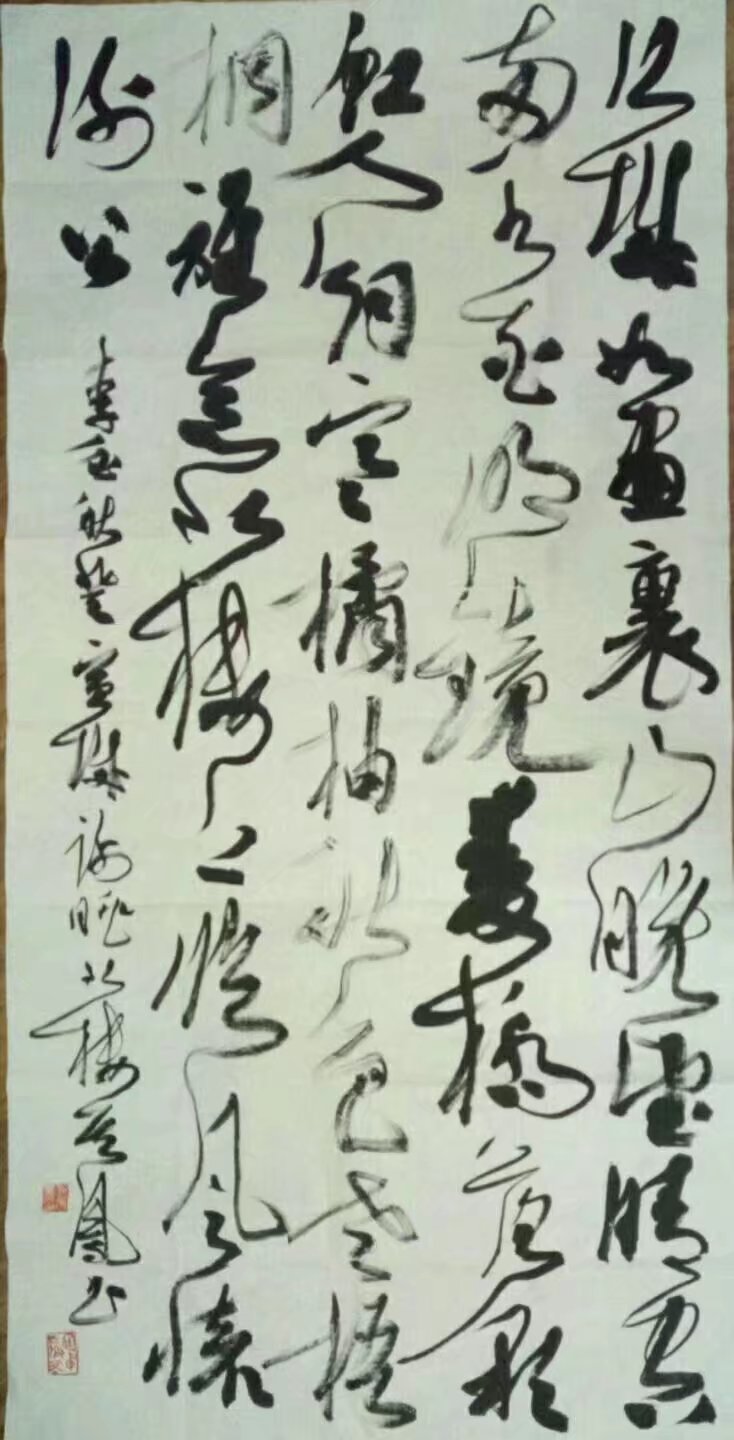 江城如畫裏山晚望晴空
兩水夾明鏡雙橋落彩
虹人烟寒橘柚秋色老梧
桐誰念北樓上臨風懷
謝公
李白秋登宣城謝朓北樓鳳书